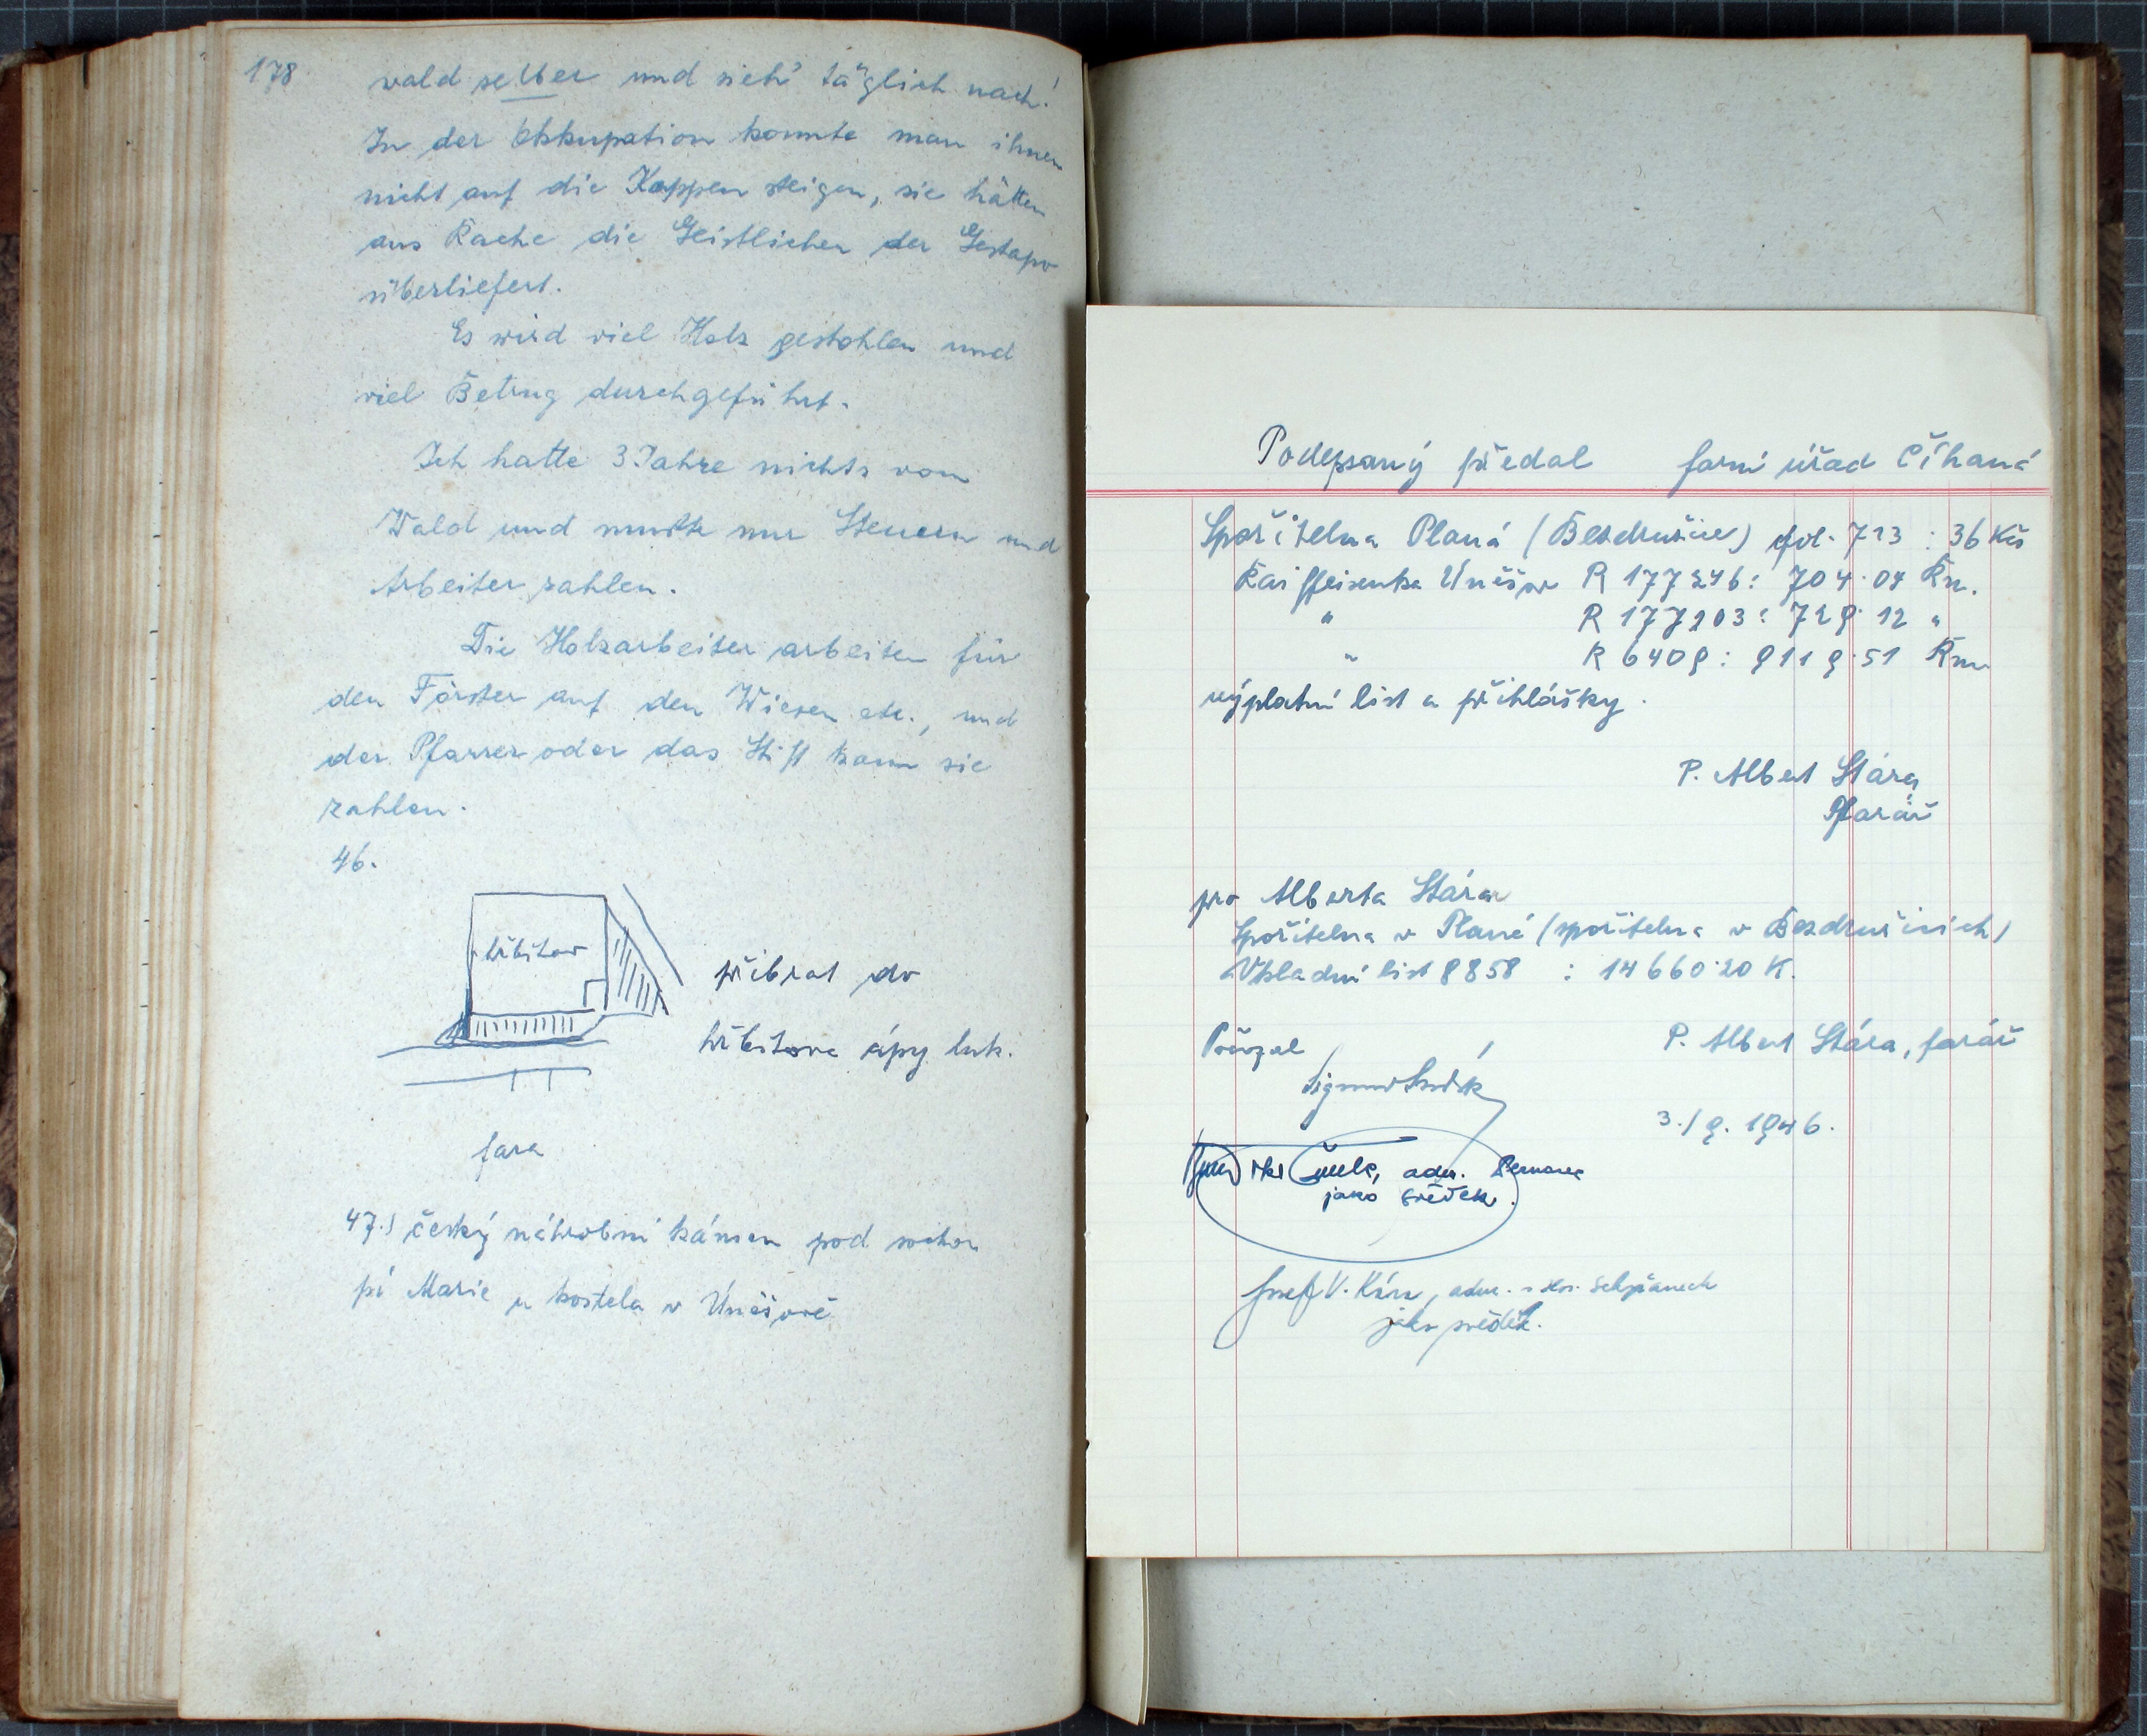 178
wald selber und sieh' täglich nach!
In der Okkupation konnte man ihnen
nicht auf die Kappen steigen, sie hätten
aus Rache die Geistlichen der Gestapo
überliefert.
Es wird viel Holz gestohlen und
viel Betrug durchgeführt.
Ich hatte 3 Jahre nichts vom
Wald und mußte nur Steuern und
Arbeiter zahlen.
Die Holzarbeiter arbeiten für
den Förster auf den Wiesen etc., und
der Pfarrer oder das Stift kann sie
zahlen.
46.
hřbitov
přibrat do
hřbitova cípy luk.
fara
47.) český náhrobní kámen pod sochou
pí Marie u kostela v Úněšově
Podepsaný předal farní úřad Číhaná
Spořitelna Planá (Bezdružice) fol. 713 : 36 Kčs
Raiffeisenka Úněšov R 177246: 704.04 Kn.
" R 177203: 729.12 "
" R 6409: 9119.51 Kn.
výplatní list a přihlášky.
P. Albert Stára
Pfarář
pro Alberta Stára
Spořitelna v Plané (spořitelna v Bezdružicích)
Vkladní list 8858 : 14660.20 K.
Převzal
P. Albert Stára, farář
3./9. 1946.
adm.
jako svědek.
Josef V. adm.
jako svědek.